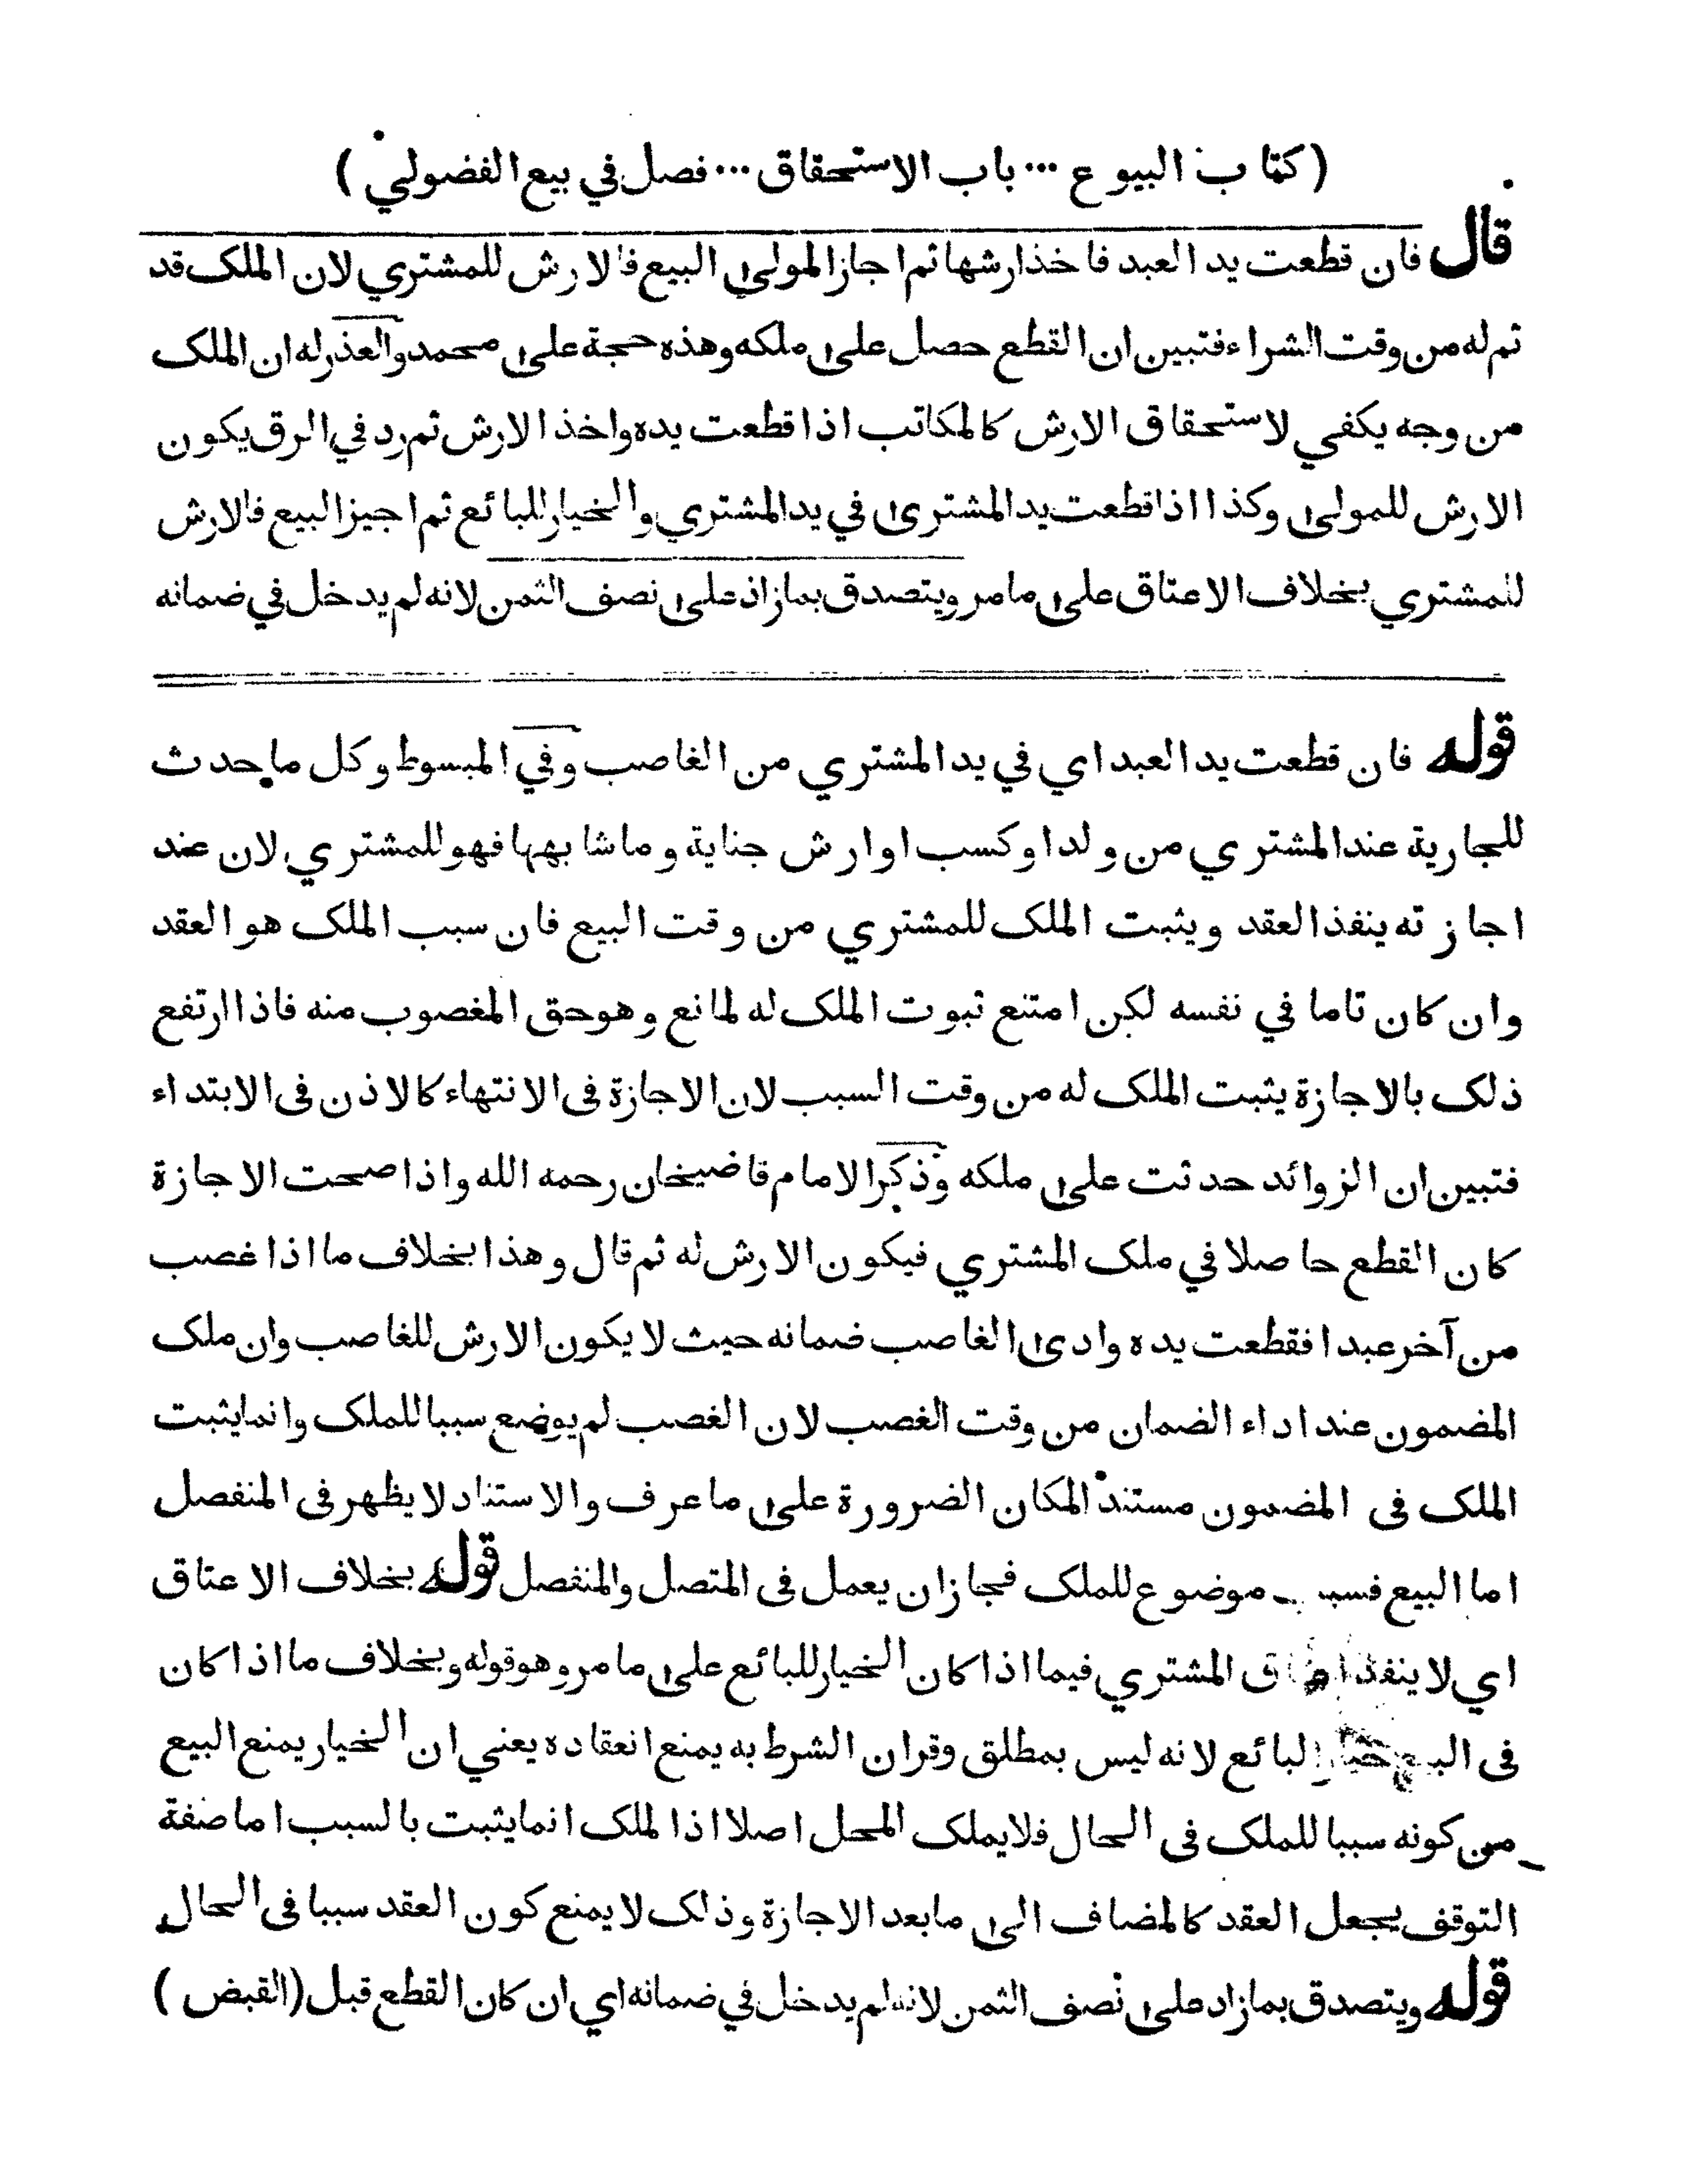 ( كتاب البيوع ... باب الاستحقاق ... فصل في بيع الفضولي )
قال فان قطعت يد العبد فاخذ ارشها ثم اجاز المولى البيع فالارش للمشتري لان الملك قد
تم له من وقت الشراء فتبين ان القطع حصل على ملكه وهذه حجة على محمد والعذر له ان الملك
من وجه يكفي لاستحقاق الارش كالمكاتب اذا قطعت يده واخذ الارش ثم رد في الرق يكون
الارش للمولى وكذا اذا قطعت يد المشترى في يد المشتري والخيار للبائع ثم اجيز البيع فالارش
للمشتري بخلاف الاعتاق على ما مر ويتصدق بما زاد على نصف الثمن لانه لم يدخل في ضمانه
قوله فان قطعت يد العبد اي في يد المشتري من الغاصب وفي المبسوط وكل ما حدث
للجارية عند المشتري من ولد او كسب او ارش جناية وما شابهها فهو للمشتري لان عند
اجازته ينفذ العقد ويثبت الملك للمشتري من وقت البيع فان سبب الملك هو العقد
وان كان تاما في نفسه لكن امتنع ثبوت الملك له لمانع وهو حق المغصوب منه فاذا ارتفع
ذلك بالاجازة يثبت الملك له من وقت السبب لان الاجازة فى الانتهاء كالاذن فى الابتداء
فتبين ان الزوائد حدثت على ملكه وذكر الامام قاضيخان رحمه الله واذا صحت الاجازة
كان القطع حاصلا في ملك المشتري فيكون الارش له ثم قال وهذا بخلاف ما اذا غصب
من آخر عبدا فقطعت يده وادى الغاصب ضمانه حيث لا يكون الارش للغاصب وان ملك
المضمون عند اداء الضمان من وقت الغصب لان الغصب لم يوضع سببا للملك وانما يثبت
الملك فى المضمون مستندا لمكان الضرورة على ما عرف والاستناد لا يظهر فى المنفصل
اما البيع موضوع للملك فجاز ان يعمل فى المتصل والمنفصل قوله بخلاف الاعتاق
اي لا ينفذ المشتري فيما اذا كان الخيار للبائع على ما مر وهو قوله وبخلاف ما اذا كان
فى البائع لانه ليس بمطلق وقران الشرط به يمنع انعقاده يعني ان الخيار يمنع البيع
من كونه سببا للملك فى الحال فلا يملك المحل اصلا اذا لملك انما يثبت بالسبب اما صفة
التوقف يجعل العقد كالمضاف الى ما بعد الاجازة وذلك لا يمنع كون العقد سببا فى الحال
قوله ويتصدق بما زاد على نصف الثمن لانه لم يدخل في ضمانه اي ان كان القطع قبل (القبض)